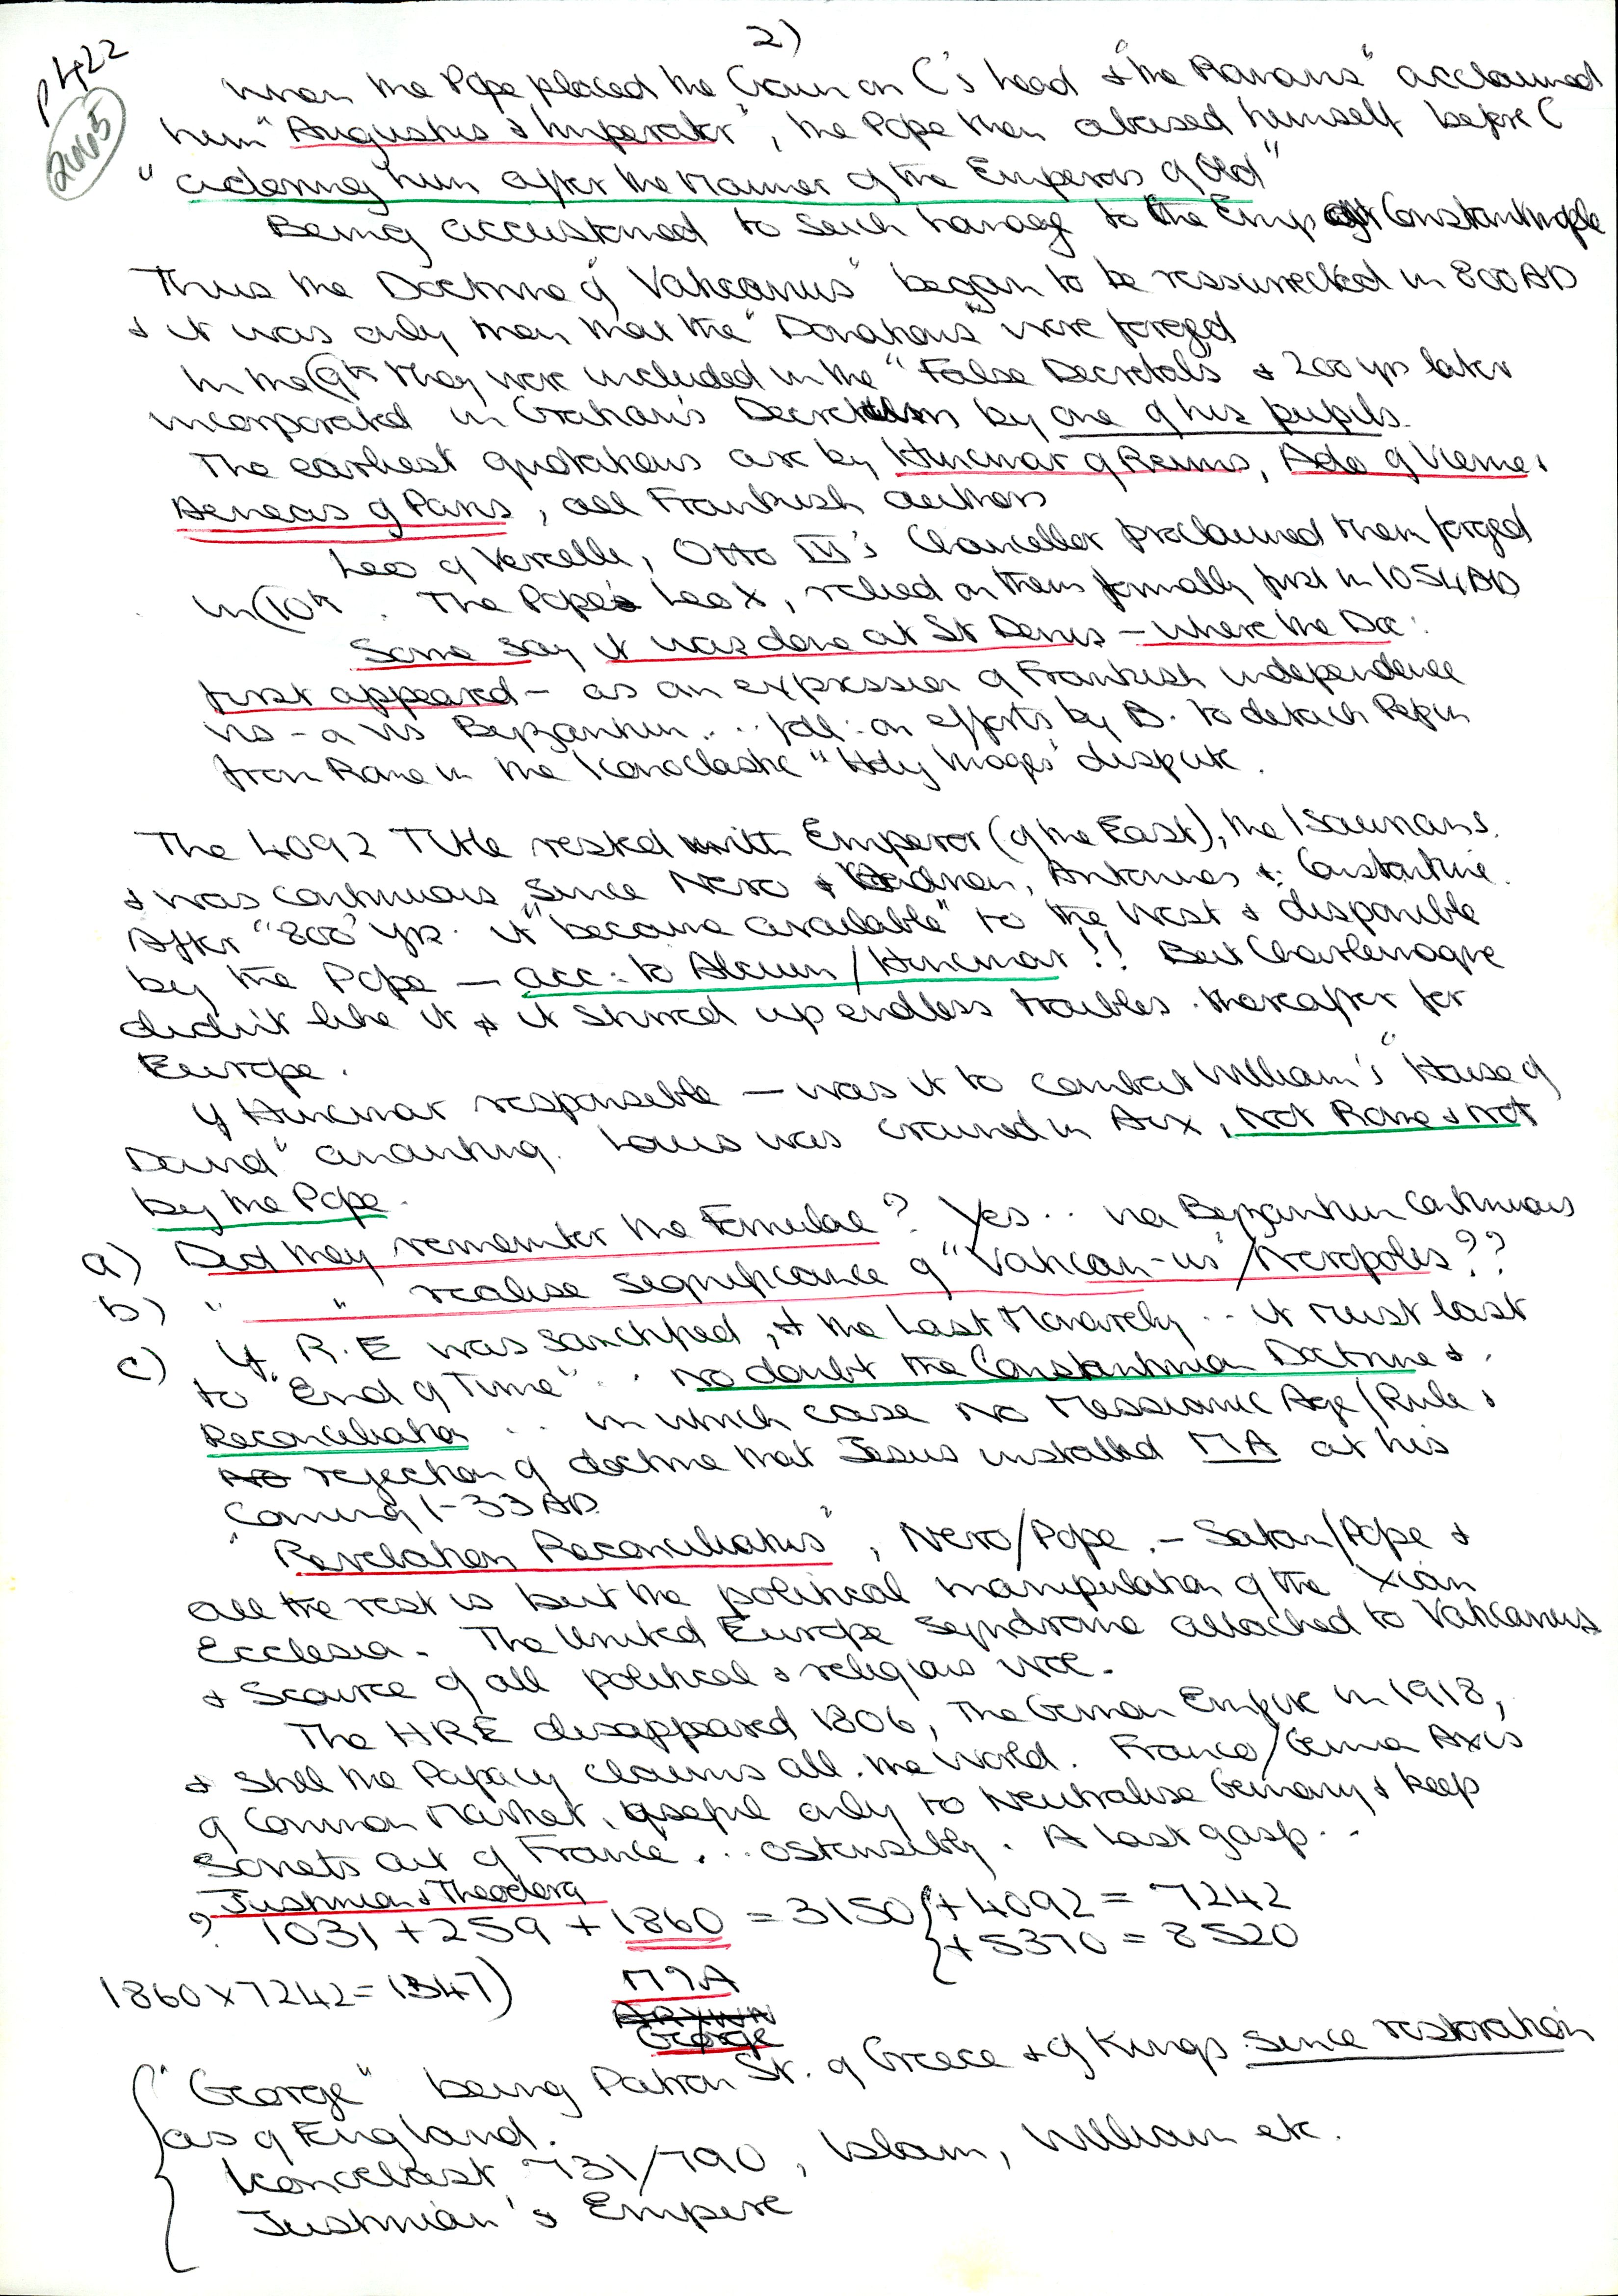 2)
p 422
2005
When the Pope placed the Crown on C's head & "the Romans" acclaimed
him "Augustus & Imperator", the Pope then abased himself before C
"adoring him after the Manner of the Emperors of Old"
Being accustomed to such homage to the Emp at Constantinople
Thus the Doctrine of "Vaticanus" began to be ressurrected in 800 AD
& it was only then that the "Donations" were forged
In the 9th they were included in the "False Decretals" & 200 yrs later
incorporated in Gratian's by one of his pupils.
The earliest quotations are by Hincmar of Reims, Ado of Vienne,
Aeneas of Paris, all Frankish authors
Leo of Vercelli, Otto III's Chancellor proclaimed them forged
in 10th. The Pope Leo X, relied on them formally first in 1054 AD
Some say it was done at St Denis - where the Doc:
first appeared - as an expression of Frankish independence
vis-a vis Byzantium... foll: on efforts by B. to detach Pepin
from Rome in the Iconoclastic "Holy Images" dispute.
The 4092 Title rested with Emperor (of the East), the Isaurians.
& was continuous since Nero & Hadrian, Antonines & Constantine.
After "800" yrs. it "became available" to the West & disponible
by the Pope — acc: to Alcuin/Hincmar!! But Charlemagne
didn't like it & it stirred up endless troubles thereafter for
Europe.
If Hincmar responsible — was it to combat William's "House of
David" anointing. Louis was crowned in Aix, Not Rome & not
by the Pope.
a) Did they remember the Formulae? Yes.. via Byzantium Continuous
b) " " realise significance of "Vatican-us"/Necropolis??
c) If R.E was sanctified, & the Last Monarchy.. it must last
to "End of Time".. No doubt the Constantinian Doctrine &
Reconciliation .. in which case no Messianic Age/Rule &
rejection of doctrine that Jesus installed MA at his
Coming 1-33 AD.
"Revelation Reconciliatus", Nero/Pope - Satan/Pope &
all the rest is but the political manipulation of the Xian
Ecclesia. The United Europe Syndrome attached to Vaticanus
& Source of all political & religious woe.
The HRE disappeared 1806, The German Empire in 1918,
& still the Papacy claims all the World. France/German Axis
of Common Market, useful only to Neutralise Germany & keep
Soviets out of France... ostensibly. A last gasp...
Justinian & Theodora
? 1031 + 259 + 1860 = 3150 {+ 4092 = 7242
{+ 5370 = 8520
1860 x 7242 = (1347)
George
{"George" being Patron St. of Greece & of Kings since restoration
as of England.
Iconoclast 731/790, Islam, William etc.
Justinian's Empire